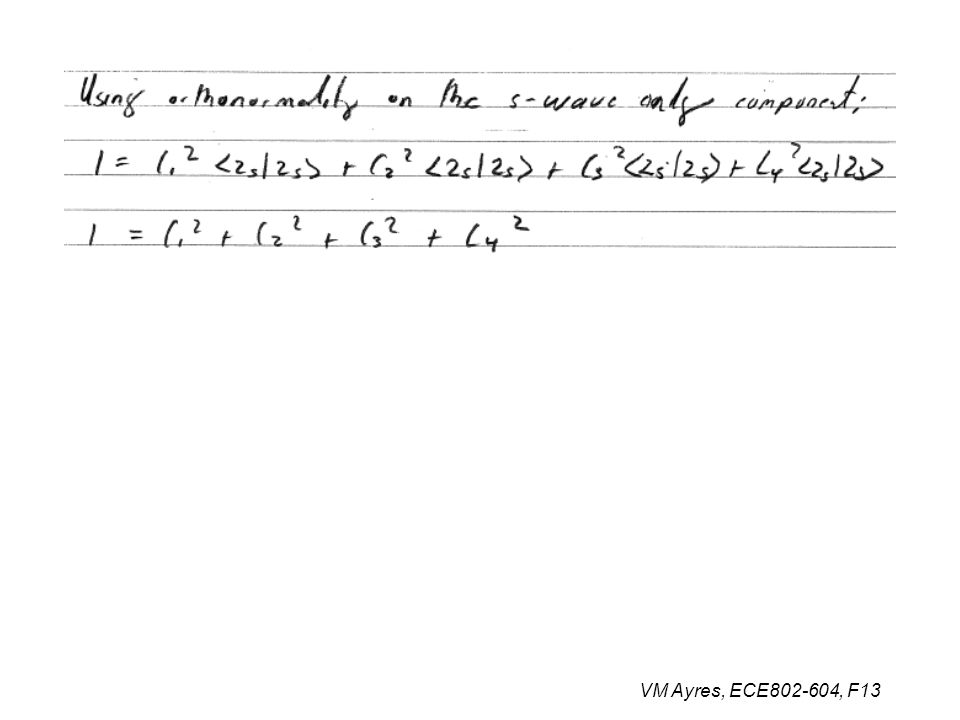 Using orthonormality on the s-wave only component:
1 = C₁² <2s|2s> + C₂² <2s|2s> + C₃² <2s|2s> + C₄² <2s|2s>
1 = C₁² + C₂² + C₃² + C₄²
VM Ayres, ECE802-604, F13